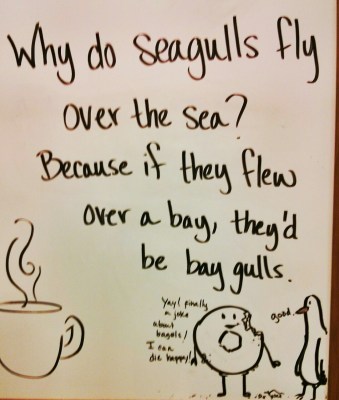 Why do seagulls fly
over the sea?
Because if they flew
over a bay, they'd
be bay gulls.
Yay! finally
a joke
about
bagels!
I can
die happy!
good.